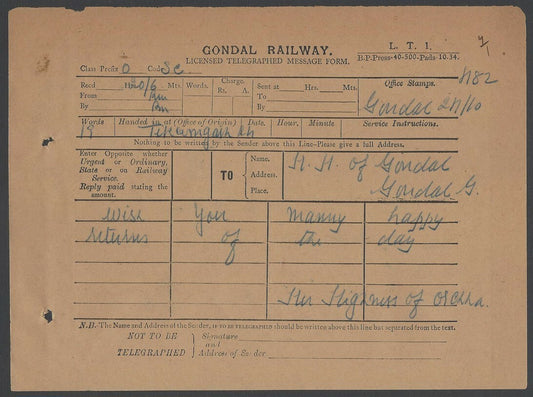 GONDAL RAILWAY.
LICENSED TELEGRAPHED MESSAGE FORM.
L. T. 1.
B.P.Press-40-500-Pads-10.34.
Class Prefix O Code Sc
Recd 20/6 Mts. Words. Charge. Rs. A. Sent at Hrs. Mts. Office Stamps.
From To
By By
Gondal
Words Handed in at (Office of Origin) Date, Hour, Minute Service Instructions.
19 Tikamgarh
Nothing to be written by the Sender above this Line-Please give a full Address.
Enter Opposite whether Urgent or Ordinary, State or on Railway Service. Reply paid stating the amount.
TO
Name. H. H. of Gondal
Address. Gondal G.
Place.
Wish You manny happy
returns of the day
Her Highness of Orchha.
N.B. The Name and Address of the Sender, IF TO BE TELEGRAPHED should be written above this line but separated from the text.
NOT TO BE TELEGRAPHED
Signature and Address of Sender